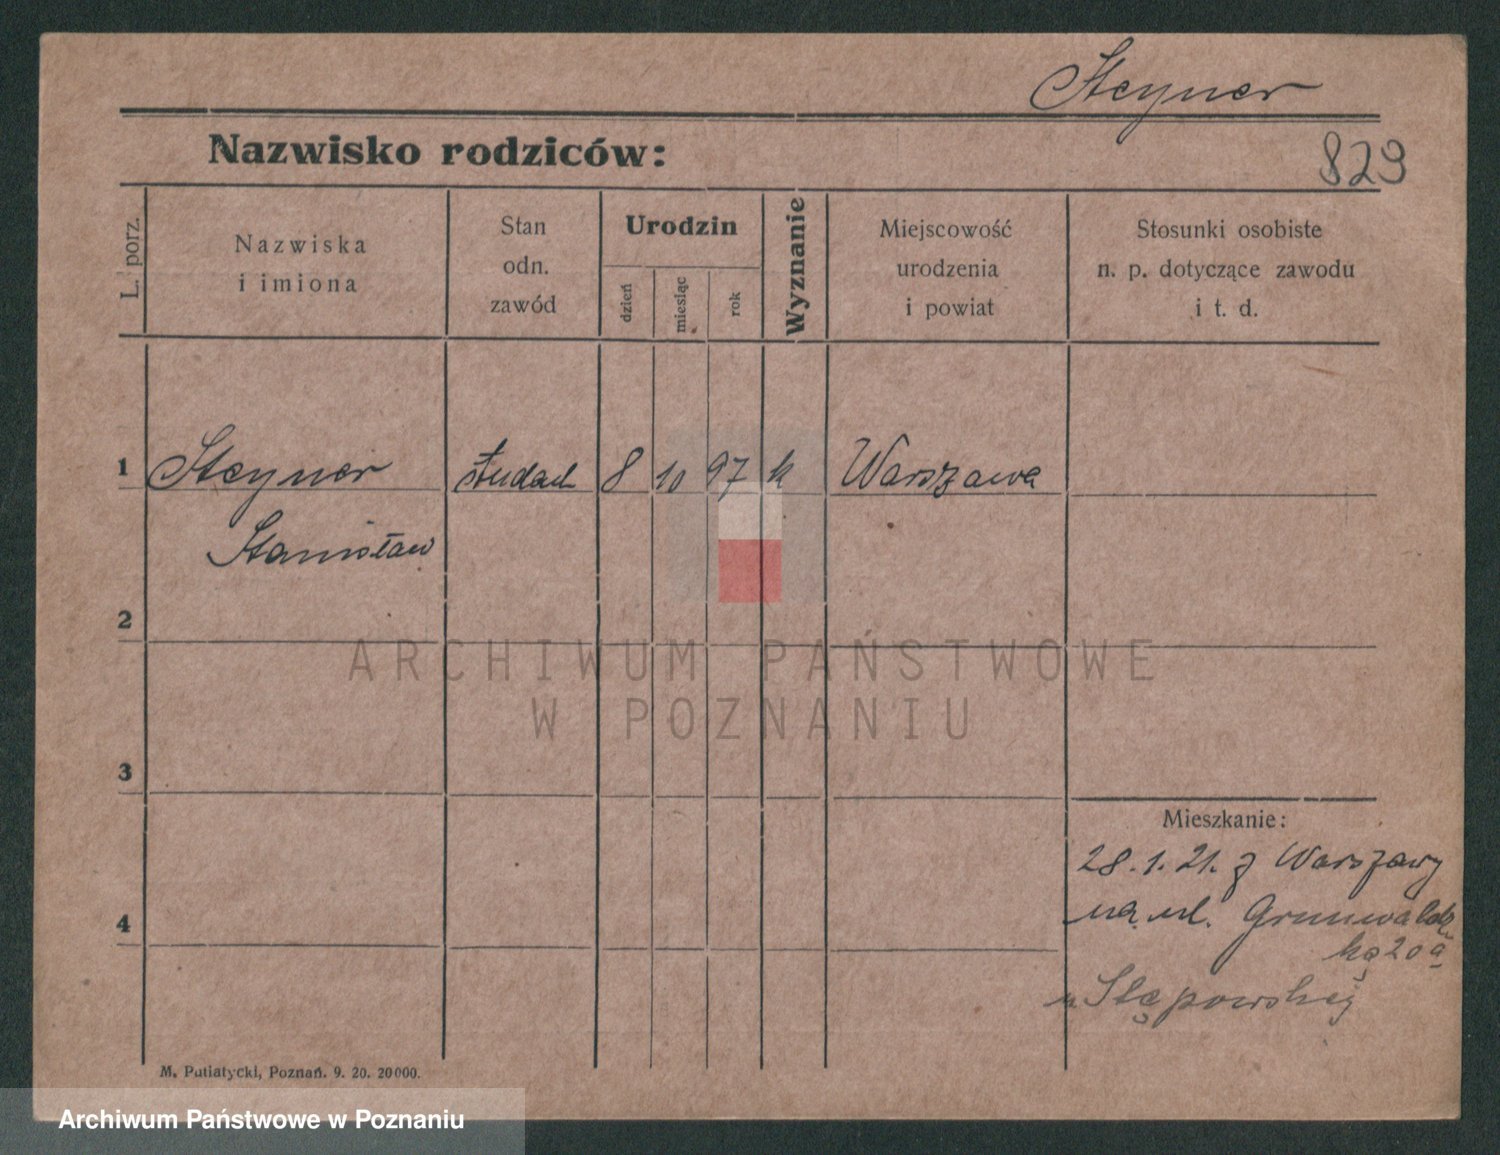 Steyner
829
Nazwisko rodziców:
L. porz.
Nazwiska
i imiona
Stan
odn.
zawód
Urodzin
dzień
miesiąc
rok
Wyznanie
Miejscowość
urodzenia
i powiat
Stosunki osobiste
n. p. dotyczące zawodu
i t. d.
1 Steyner 8 10 97 k Warszawa
Stanisław
2
ARCHIWUM PAŃSTWOWE
W POZNANIU
3
Mieszkanie:
28.1.21. z Warszawy
na ul. Grunwaldz
ką 20 a
u Stąpowskiej
4
M. Putiatycki, Poznań. 9. 20. 20000.
Archiwum Państwowe w Poznaniu